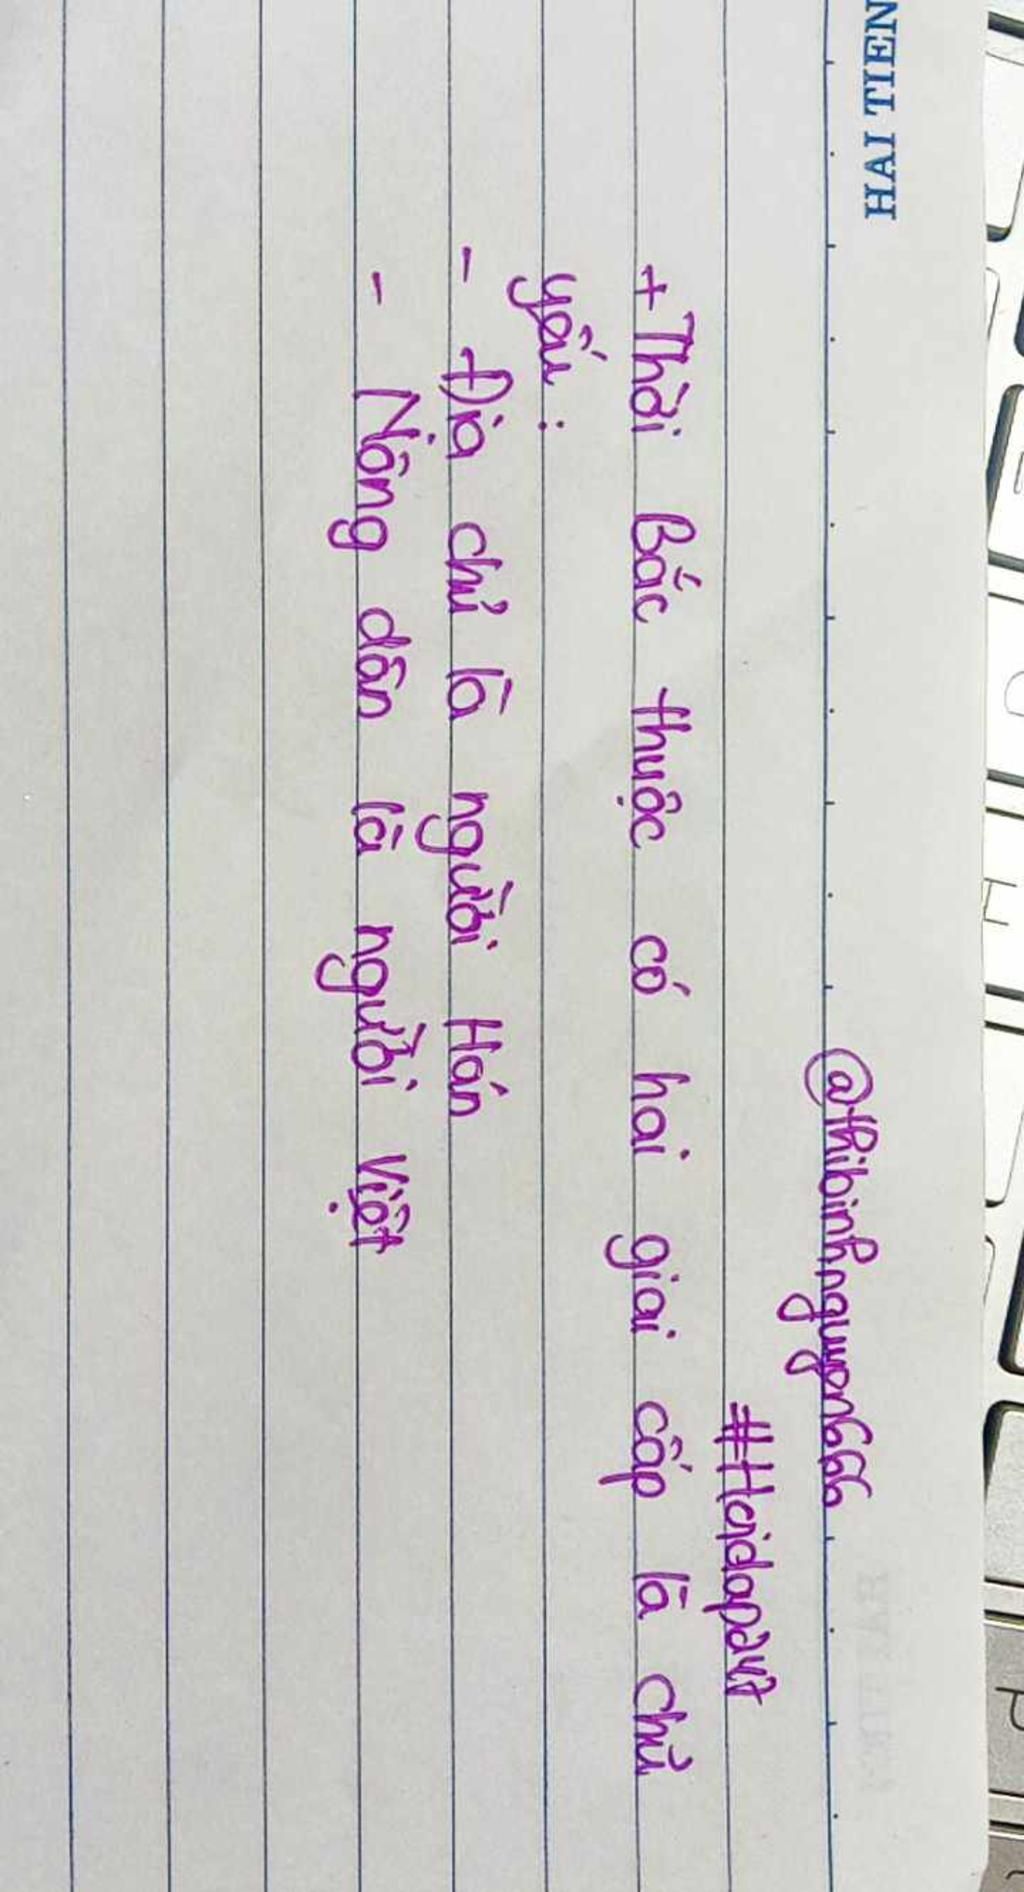 HAI TIEN
@thibinhnguyen666
#Hoidap247
+ Thời Bắc thuộc có hai giai cấp là chủ
yếu :
- Địa chủ là người Hán
- Nông dân là người Việt